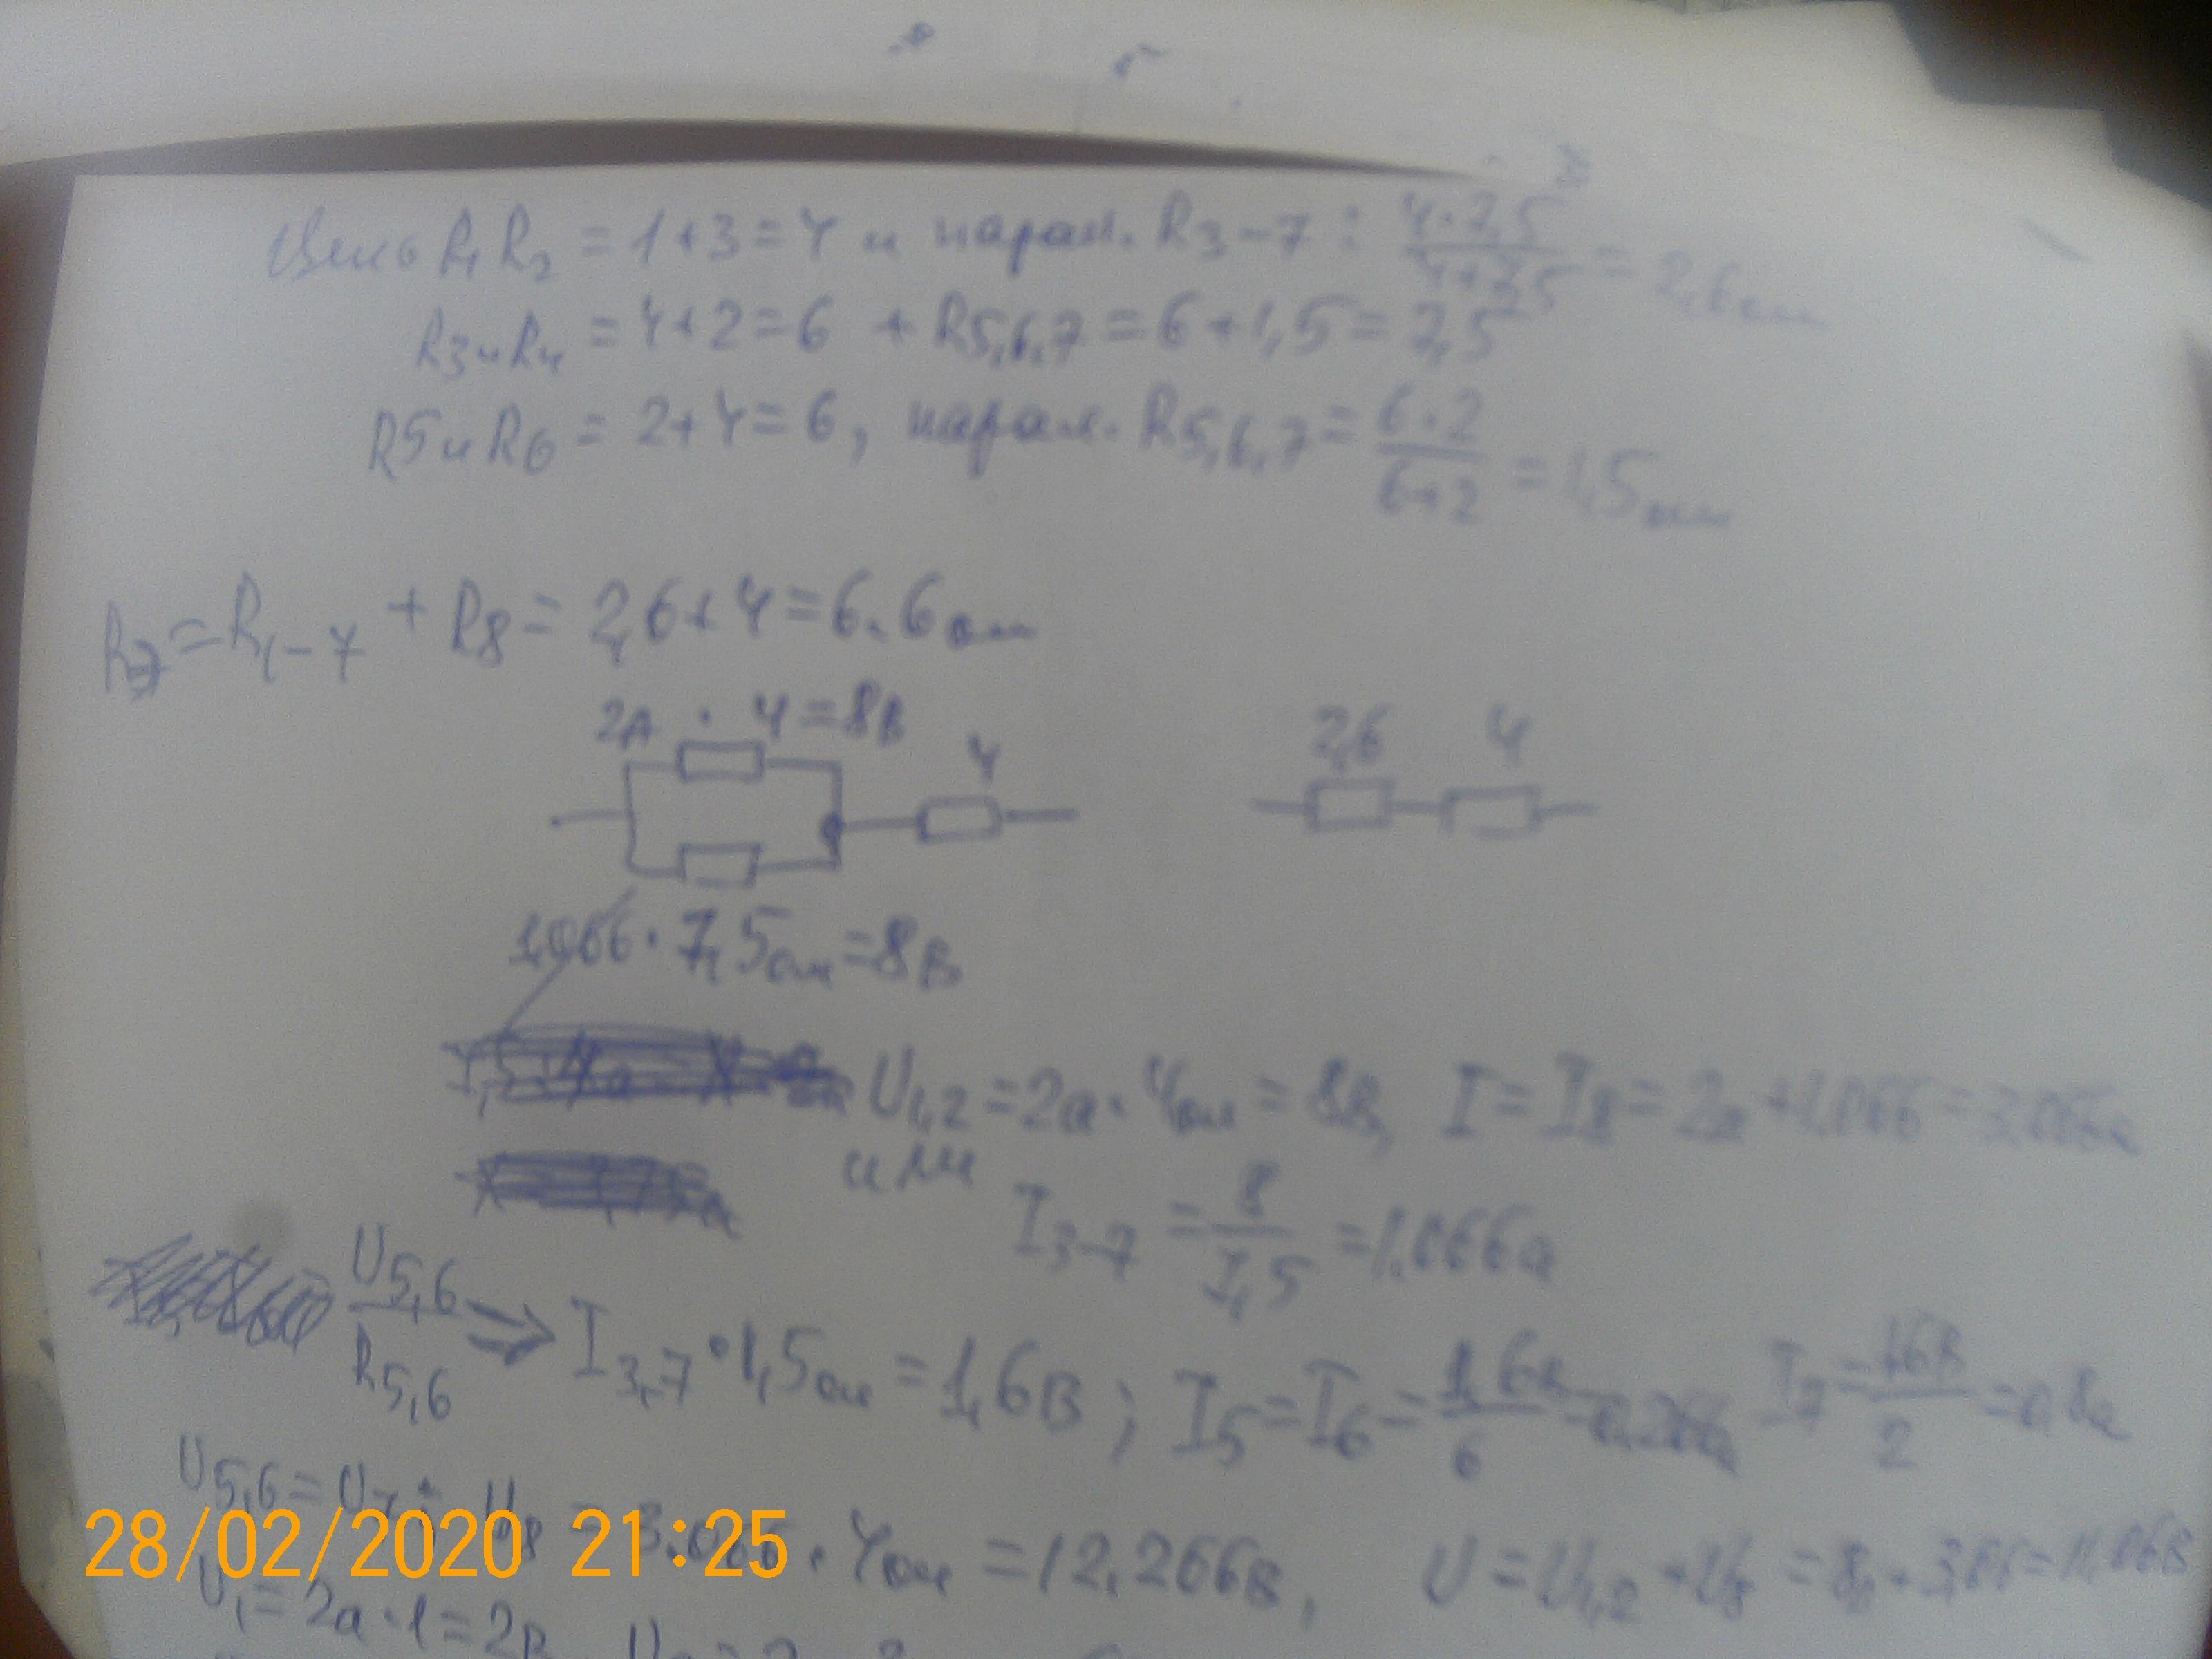 Цепь R1 R2 = 1+3=4 и парал. R3-7 : 4·7,5 / 4+7,5 = 2,6 ом
R3 и R4 = 4+2=6 + R5,6,7 = 6+1,5= 7,5
R5 и R6 = 2+4=6, парал. R5,6,7 = 6·2 / 6+2 = 1,5 ом
Rэ = R1-7 + R8 = 2,6+4=6.6 ом
2А · 4=8В
4
2,6 4
1,066 · 7,5 ом =8В
U1,2 = 2а · 4ом = 8В, I = I8 = 2а +1.066 = 3.066а
или
I3-7 = 8 / 7,5 =1.066а
U5,6 / R5,6 ⇒ I3,7 · 1,5 ом = 1,6В ; I5=I6= 1,6в / 6 = 0.266а I7 = 1.6В / 2 =0,8а
U5,6= U7; U8 = 3.066 · 4ом =12.266В, U = U1,2 + U8 =
28/02/2020 21:25
U1= 2а·1=2В